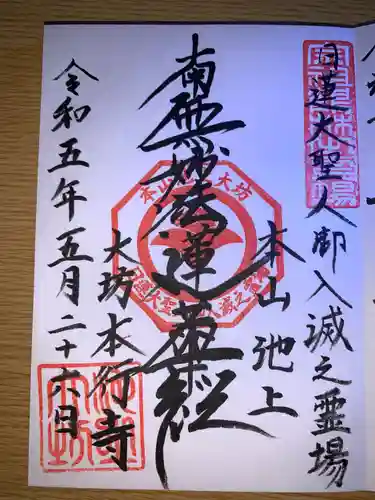 日蓮大聖人御入滅之霊場
本山池上
南無妙法蓮華経
大坊本行寺
令和五年五月二十六日
本山池上大坊